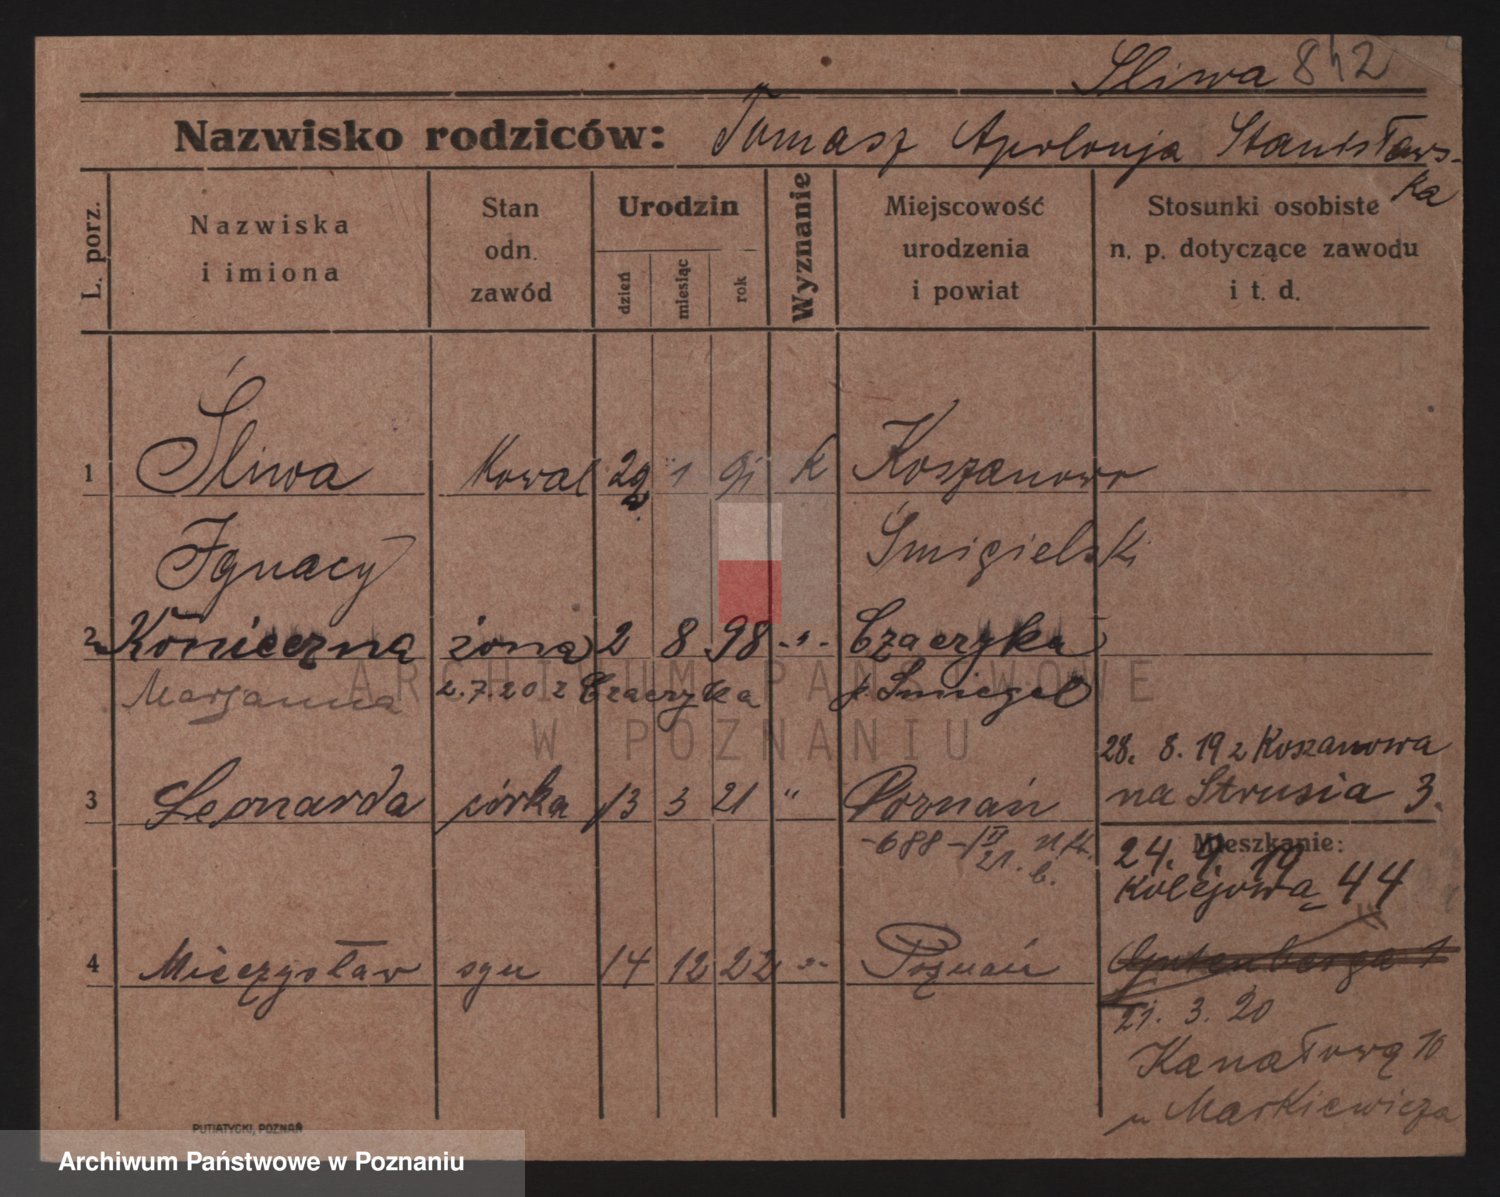 Sliwa 842
Nazwisko rodziców: Tomasz Apolonja Stanisławs-
ka
L. porz.
Nazwiska
i imiona
Stan
odn.
zawód
Urodzin
dzień
miesiąc
rok
Wyznanie
Miejscowość
urodzenia
i powiat
Stosunki osobiste
n. p. dotyczące zawodu
i t. d.
1 Śliwa Kowal 29 1 91 k Koszanowo
Ignacy Śmigielski
2 Konieczna żona 2 8 98 -"- Czaczyka
Marjanna 2.7.20 z Czaczyka p. Śmiegel
28. 8. 19 z Koszanowa
3 Leonarda córka 13 3 21 " Poznań na Strusia 3.
-688-
Mieszkanie:
24. 9. 19
Kolejowa 44
4 Mieczysław syn 14 12 22 -"- Poznań Gutenberga 1
21. 3. 20
Kanałową 10
u Markiewicza
PUTIATYCKI, POZNAŃ
ARCHIWUM PAŃSTWOWE
W POZNANIU
Archiwum Państwowe w Poznaniu